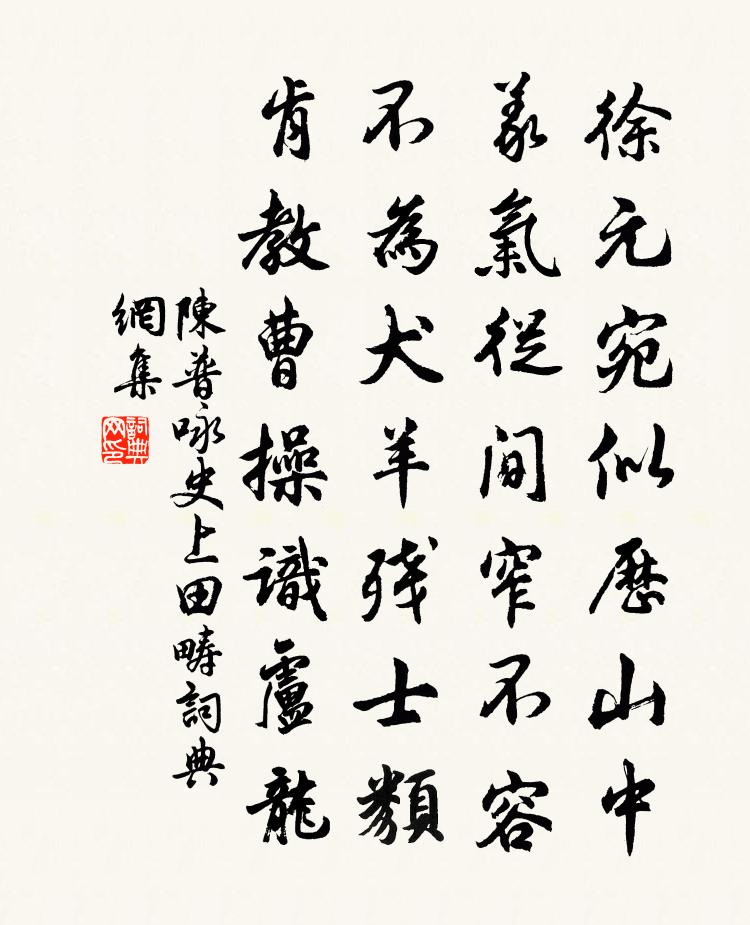 徐元宛似歷山中
義氣從間窄不容
不為犬羊残士類
肯教曹操識盧龍
陳普咏史上田疇詞典
網集
詞典
网印